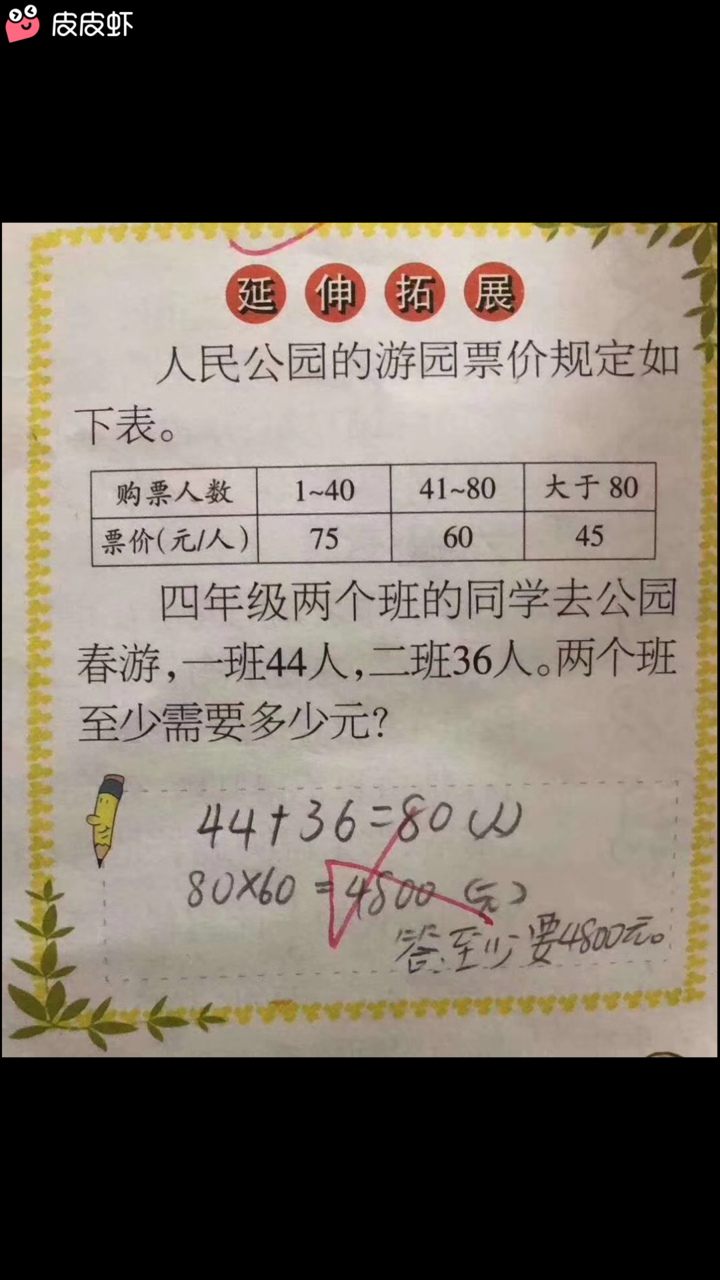 皮皮虾
延伸拓展
人民公园的游园票价规定如
下表。
购票人数 1~40 41~80 大于 80
票价(元/人) 75 60 45
四年级两个班的同学去公园
春游,一班44人,二班36人。两个班
至少需要多少元?
44+36=80(人)
80×60=4800(元)
答:至少要4800元。